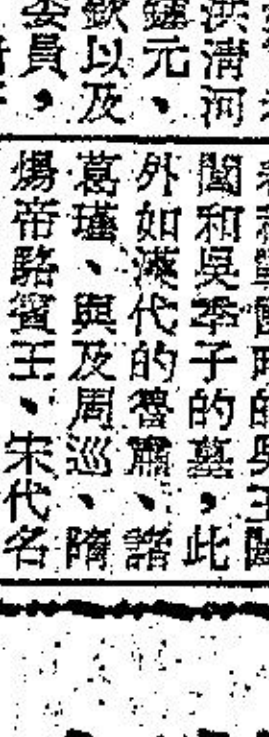 洪清河
元、
欽以及
委員，
國時的吳王闔
閭和吳季子的墓，此
外如漢代的魯肅、諸
葛瑾、與及周巡、隋
煬帝駱賓王、宋代名